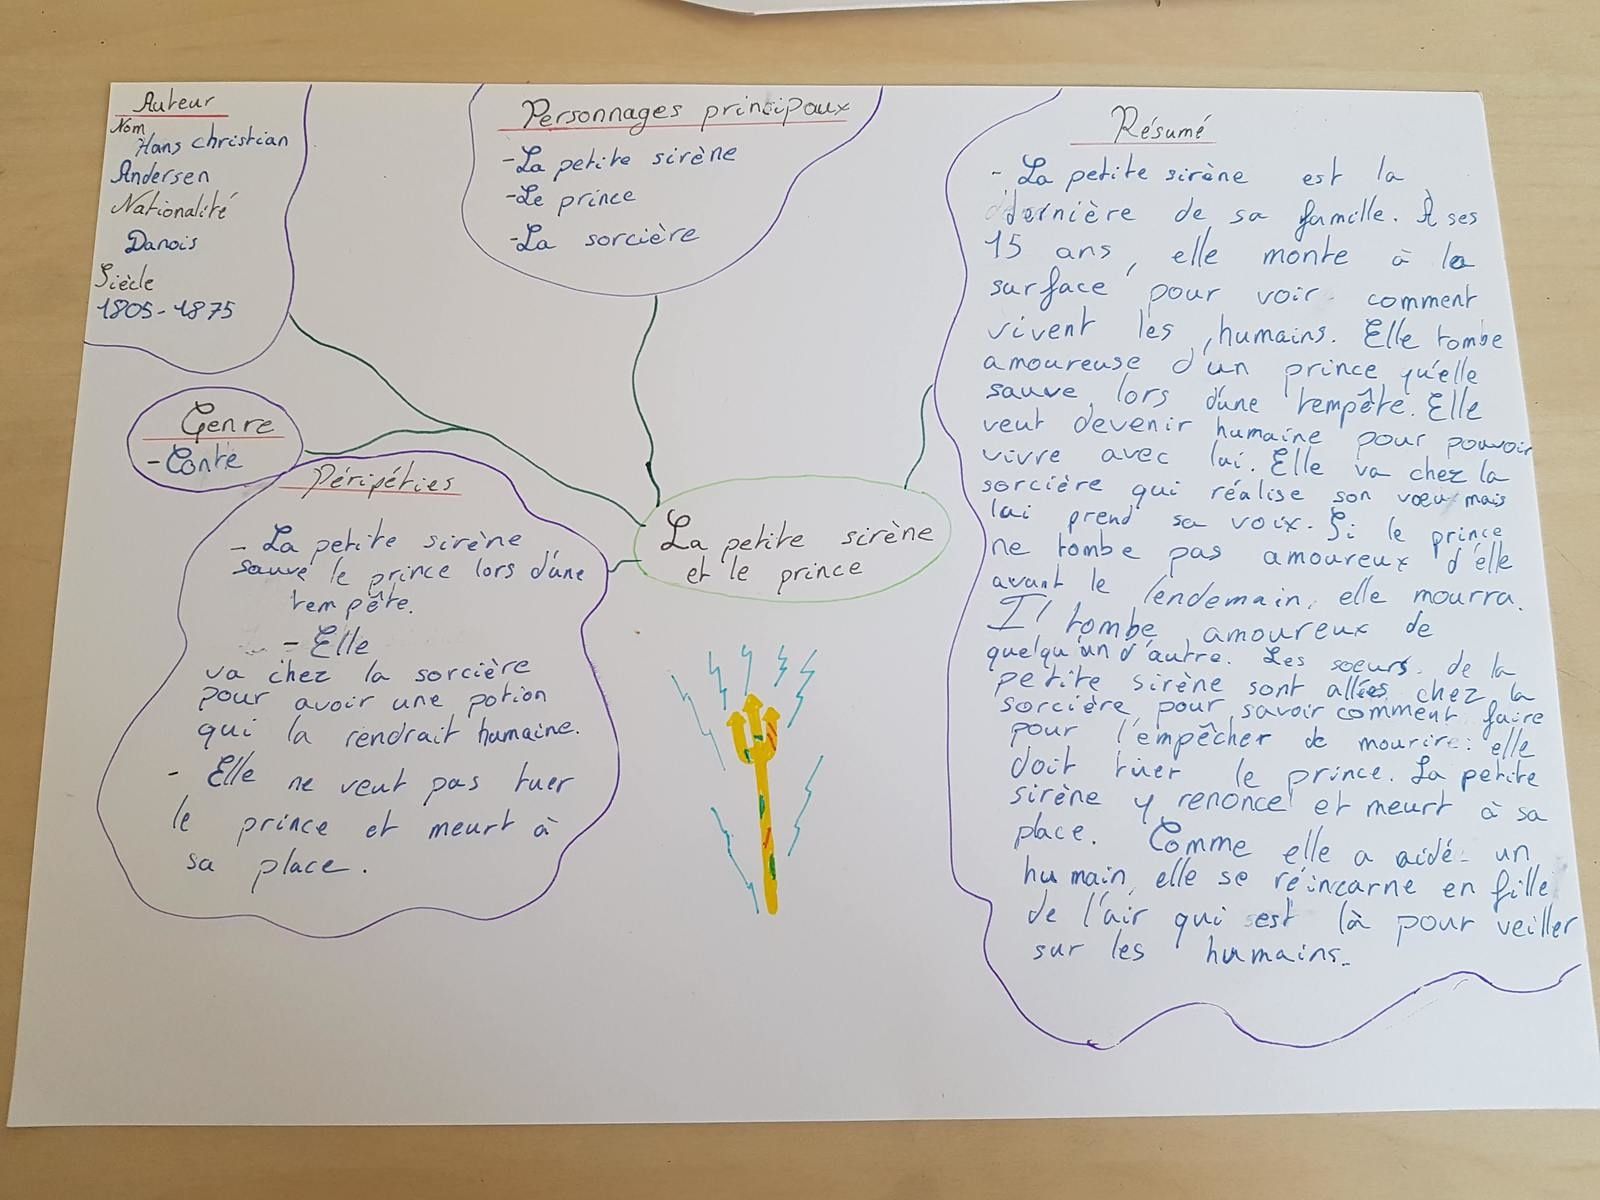 Auteur
Nom
Hans christian
Andersen
Nationalité
Danois
Siècle
1805-1875
Personnages principaux
-La petite sirène
-Le prince
-La sorcière
Genre
-Conte
Péripéties
- La petite sirène
sauve le prince lors d'une
tempête.
- Elle
va chez la sorcière
pour avoir une potion
qui la rendrait humaine.
- Elle ne veut pas tuer
le prince et meurt à
sa place.
La petite sirène
et le prince
Résumé
- La petite sirène est la
dernière de sa famille. À ses
15 ans, elle monte à la
surface pour voir comment
vivent les humains. Elle tombe
amoureuse d'un prince qu'elle
sauve lors d'une tempête. Elle
veut devenir humaine pour pouvoir
vivre avec lui. Elle va chez la
sorcière qui réalise son vœu mais
lui prend sa voix. Si le prince
ne tombe pas amoureux d'elle
avant le lendemain, elle mourra.
Il tombe amoureux de
quelqu'un d'autre. Les soeurs de la
petite sirène sont allées chez la
sorcière pour savoir comment faire
pour l'empêcher de mourire: elle
doit tuer le prince. La petite
sirène y renonce et meurt à sa
place. Comme elle a aidé un
humain, elle se réincarne en fille
de l'air qui est là pour veiller
sur les humains.